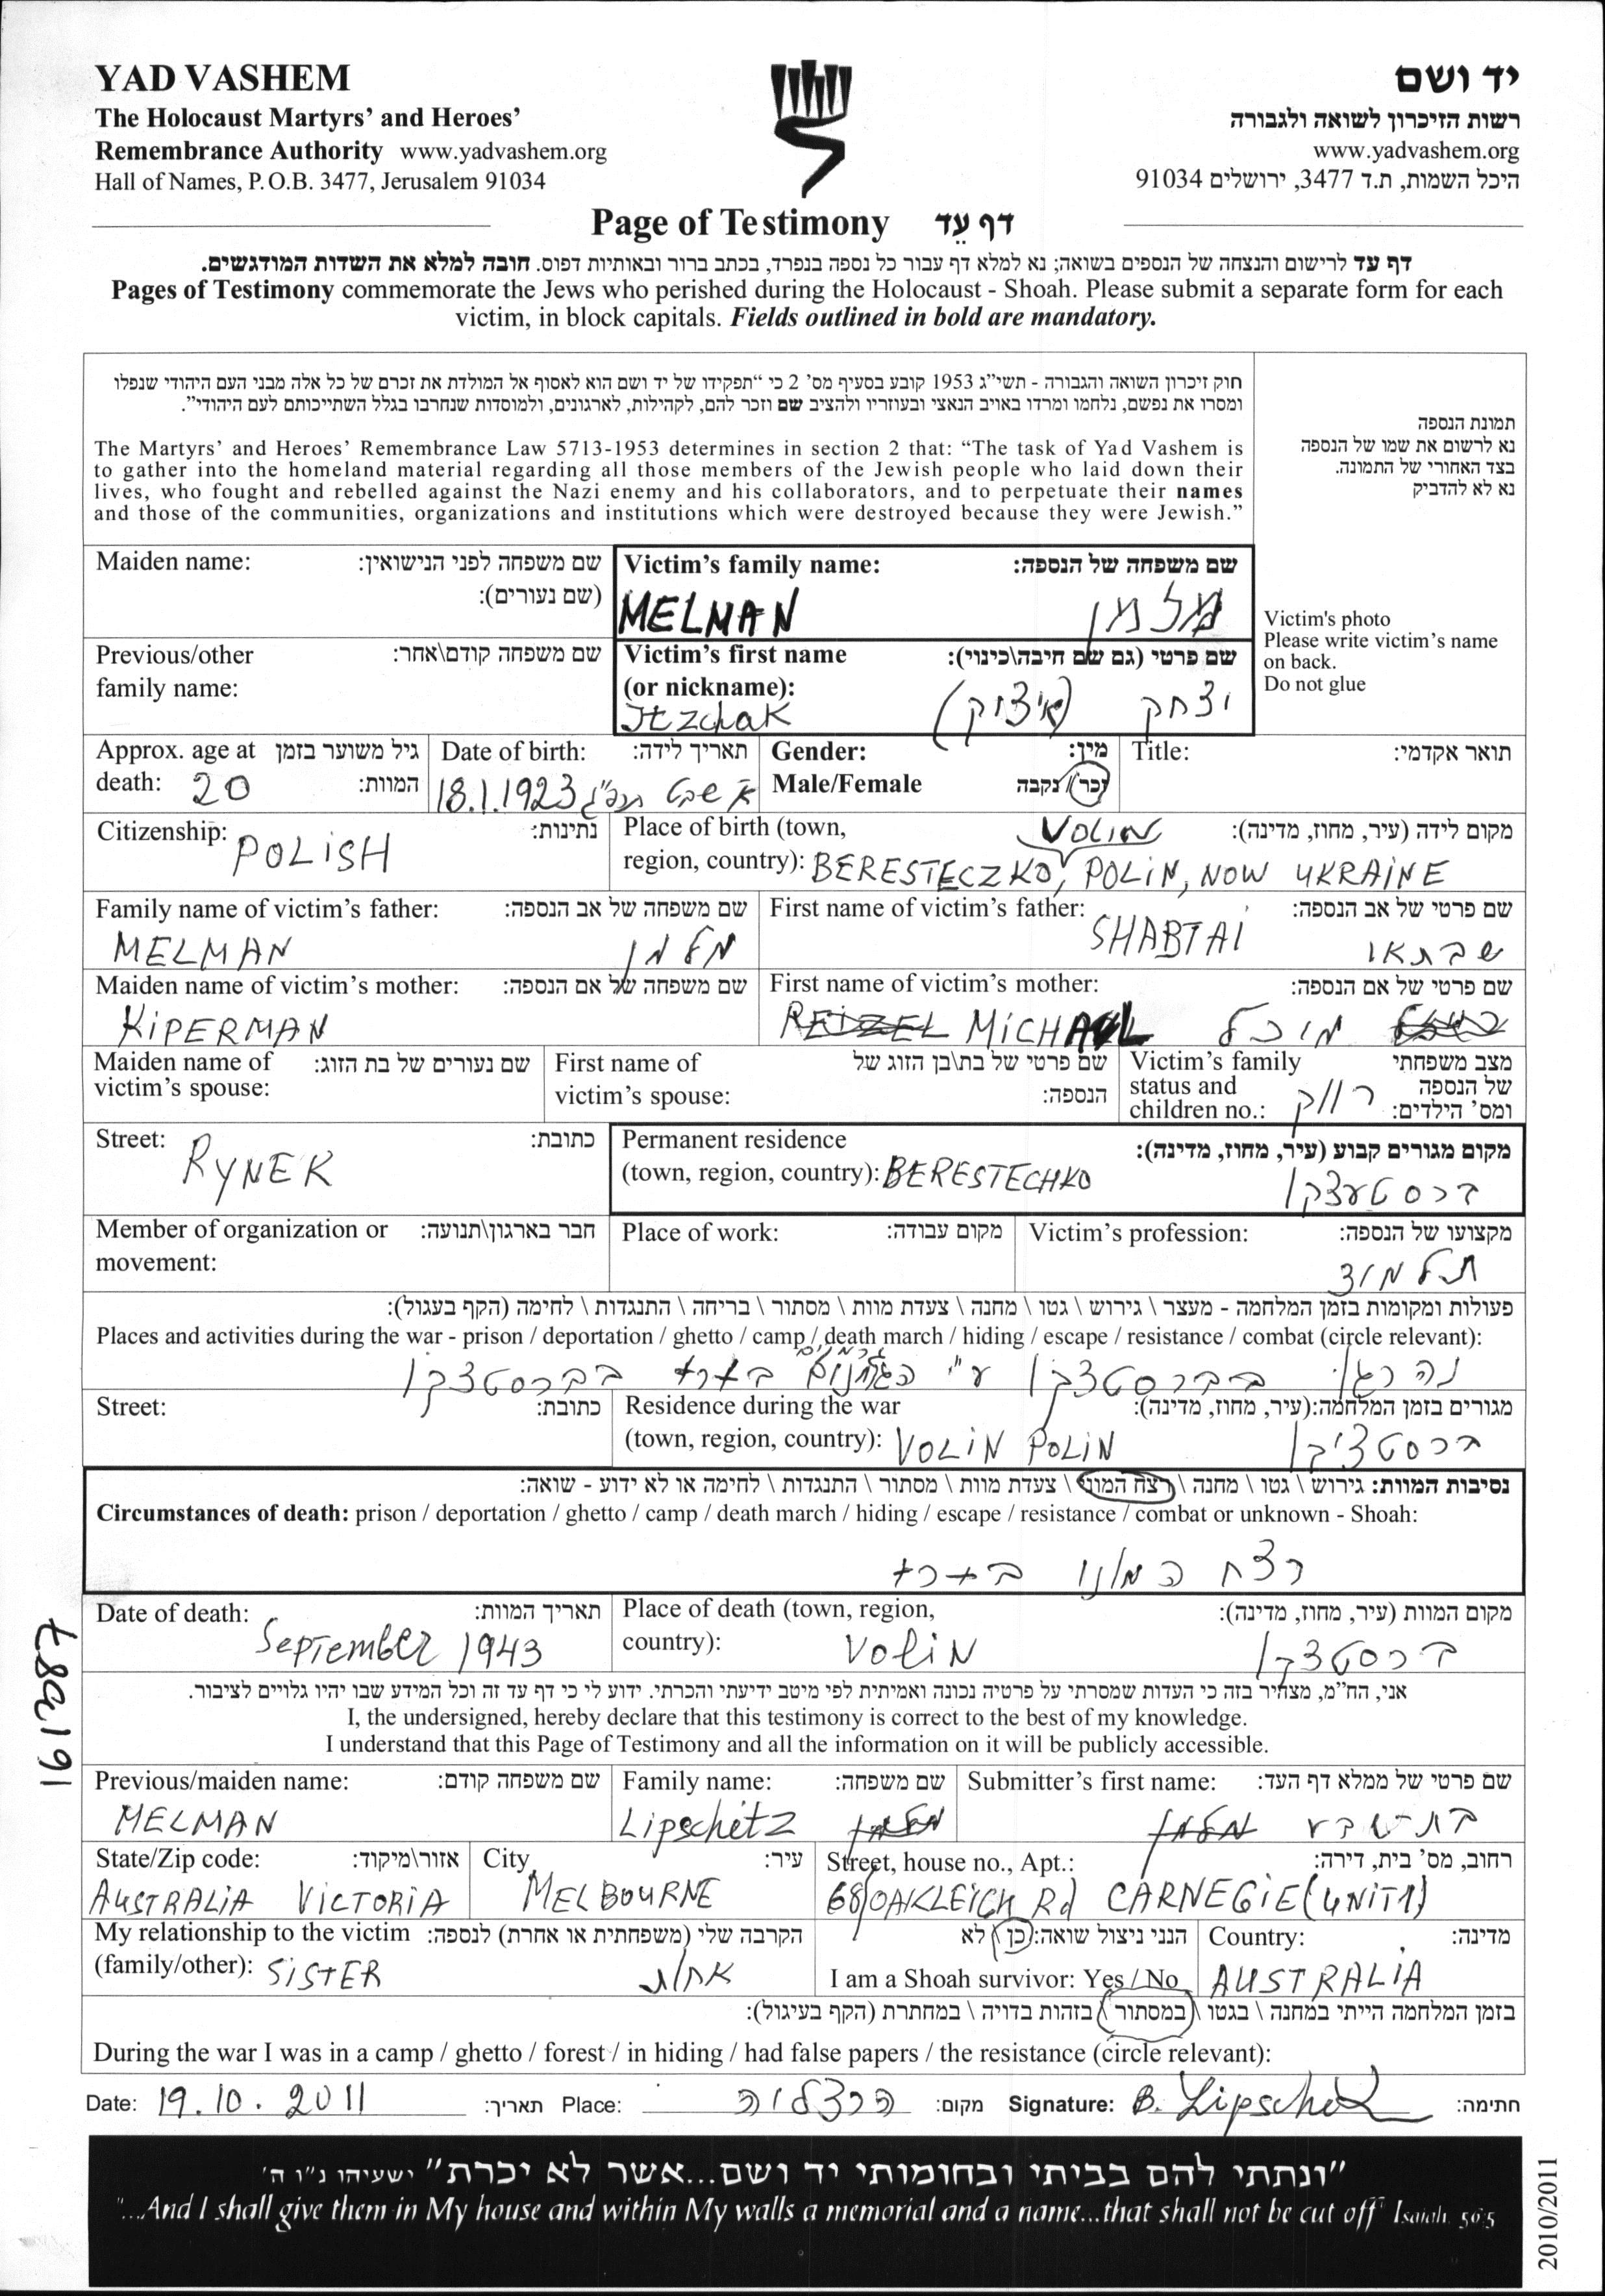 YAD VASHEM
The Holocaust Martyrs’ and Heroes’
Remembrance Authority www.yadvashem.org
Hall of Names, P.O.B. 3477, Jerusalem 91034
יד ושם
רשות הזיכרון לשואה ולגבורה
www.yadvashem.org
היכל השמות, ת.ד 3477, ירושלים 91034
Page of Testimony דף עֵד
דף עד לרישום והנצחה של הנספים בשואה; נא למלא דף עבור כל נספה בנפרד, בכתב ברור ובאותיות דפוס. חובה למלא את השדות המודגשים.
Pages of Testimony commemorate the Jews who perished during the Holocaust - Shoah. Please submit a separate form for each
victim, in block capitals. Fields outlined in bold are mandatory.
חוק זיכרון השואה והגבורה - תשי״ג 1953 קובע בסעיף מס' 2 כי “תפקידו של יד ושם הוא לאסוף אל המולדת את זכרם של כל אלה מבני העם היהודי שנפלו
ומסרו את נפשם, נלחמו ומרדו באויב הנאצי ובעוזריו ולהציב שם וזכר להם, לקהילות, לארגונים, ולמוסדות שנחרבו בגלל השתייכותם לעם היהודי”.
The Martyrs’ and Heroes’ Remembrance Law 5713-1953 determines in section 2 that: “The task of Yad Vashem is
to gather into the homeland material regarding all those members of the Jewish people who laid down their
lives, who fought and rebelled against the Nazi enemy and his collaborators, and to perpetuate their names
and those of the communities, organizations and institutions which were destroyed because they were Jewish.”
תמונת הנספה
נא לרשום את שמו של הנספה
בצד האחורי של התמונה.
נא לא להדביק
Victim's photo
Please write victim’s name
on back.
Do not glue
Maiden name: שם משפחה לפני הנישואין:
(שם נעורים):
Victim’s family name: שם משפחה של הנספה:
MELMAN מלמן
Previous/other שם משפחה קודם\אחר:
family name:
Victim’s first name שם פרטי (גם שם חיבה\כינוי):
(or nickname):
Itzchak יצחק (איציק)
Approx. age at גיל משוער בזמן
death: 20 המוות:
Date of birth: תאריך לידה:
18.1.1923 א שבט תרפ"ג
Gender: מין:
Male/Female זכר/נקבה
Title: תואר אקדמי:
Citizenship: נתינות:
POLISH
Place of birth (town, מקום לידה (עיר, מחוז, מדינה):
VOLIN
region, country): BERESTECZKO, POLIN, NOW UKRAINE
Family name of victim’s father: שם משפחה של אב הנספה:
MELMAN מלמן
First name of victim’s father: שם פרטי של אב הנספה:
SHABTAI שבתאי
Maiden name of victim’s mother: שם משפחה של אם הנספה:
KIPERMAN
First name of victim’s mother: שם פרטי של אם הנספה:
REIZEL MICHAL מיכל
Maiden name of שם נעורים של בת הזוג:
victim’s spouse:
First name of שם פרטי של בת\בן הזוג של
victim’s spouse: הנספה:
Victim’s family מצב משפחתי
status and של הנספה
children no.: ומס' הילדים: רווק
Street: כתובת:
RYNEK
Permanent residence מקום מגורים קבוע (עיר, מחוז, מדינה):
(town, region, country): BERESTECHKO ברסטעצקו
Member of organization or חבר בארגון\תנועה:
movement:
Place of work: מקום עבודה:
Victim’s profession: מקצועו של הנספה:
תלמיד
פעולות ומקומות בזמן המלחמה - מעצר \ גירוש \ גטו \ מחנה \ צעדת מוות \ מסתור \ בריחה \ התנגדות \ לחימה (הקף בעגול):
Places and activities during the war - prison / deportation / ghetto / camp / death march / hiding / escape / resistance / combat (circle relevant):
נהרג בברסטצקו ע"י הגרמנים בברסטצקו
Street: כתובת:
Residence during the war מגורים בזמן המלחמה:(עיר, מחוז, מדינה):
(town, region, country): VOLIN POLIN ברסטציקו
נסיבות המוות: גירוש \ גטו \ מחנה \ רצח המוני \ צעדת מוות \ מסתור \ התנגדות \ לחימה או לא ידוע - שואה:
Circumstances of death: prison / deportation / ghetto / camp / death march / hiding / escape / resistance / combat or unknown - Shoah:
רצח המוני
Date of death: תאריך המוות:
September 1943
Place of death (town, region, מקום המוות (עיר, מחוז, מדינה):
country): VOLIN ברסטצקו
אני, הח״מ, מצהיר בזה כי העדות שמסרתי על פרטיה נכונה ואמיתית לפי מיטב ידיעתי והכרתי. ידוע לי כי דף עד זה וכל המידע שבו יהיו גלויים לציבור.
I, the undersigned, hereby declare that this testimony is correct to the best of my knowledge.
I understand that this Page of Testimony and all the information on it will be publicly accessible.
Previous/maiden name: שם משפחה קודם:
MELMAN
Family name: שם משפחה:
Lipschitz מלמן
Submitter’s first name: שם פרטי של ממלא דף העד:
בת שבע מלמן
State/Zip code: אזור\מיקוד:
AUSTRALIA VICTORIA
City עיר:
MELBOURNE
Street, house no., Apt.: רחוב, מס' בית, דירה:
68/OAKLEIGH Rd CARNEGIE (UNIT1)
My relationship to the victim הקרבה שלי (משפחתית או אחרת) לנספה:
(family/other): SISTER אחות
הנני ניצול שואה: כן \ לא
I am a Shoah survivor: Yes / No
Country: מדינה:
AUSTRALIA
בזמן המלחמה הייתי במחנה \ בגטו \ במסתור \ בזהות בדויה \ במחתרת (הקף בעיגול):
During the war I was in a camp / ghetto / forest / in hiding / had false papers / the resistance (circle relevant):
Date: 19.10.2011 תאריך: Place: הרצליה מקום: Signature: B. Lipschitz חתימה:
“ונתתי להם בביתי ובחומותי יד ושם...אשר לא יכרת” ישעיהו נ״ו ה'
"...And I shall give them in My house and within My walls a memorial and a name...that shall not be cut off" Isaiah 56:5
2010/2011